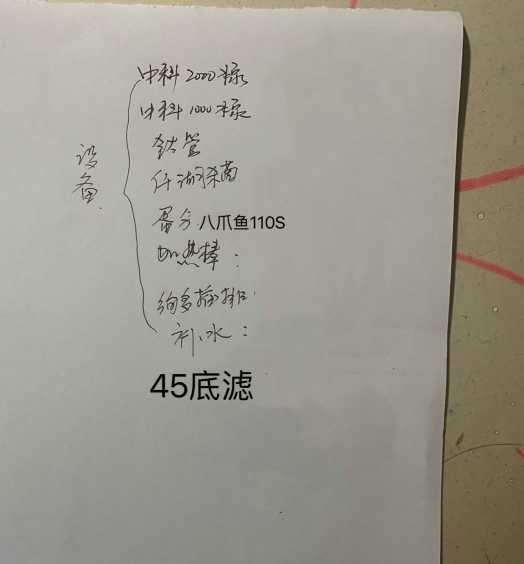 设备
中科2000绿
中科1000绿
钛管
仟湖杀菌
蛋分八爪鱼110S
加热棒:
绚多插排
补水:
45底滤